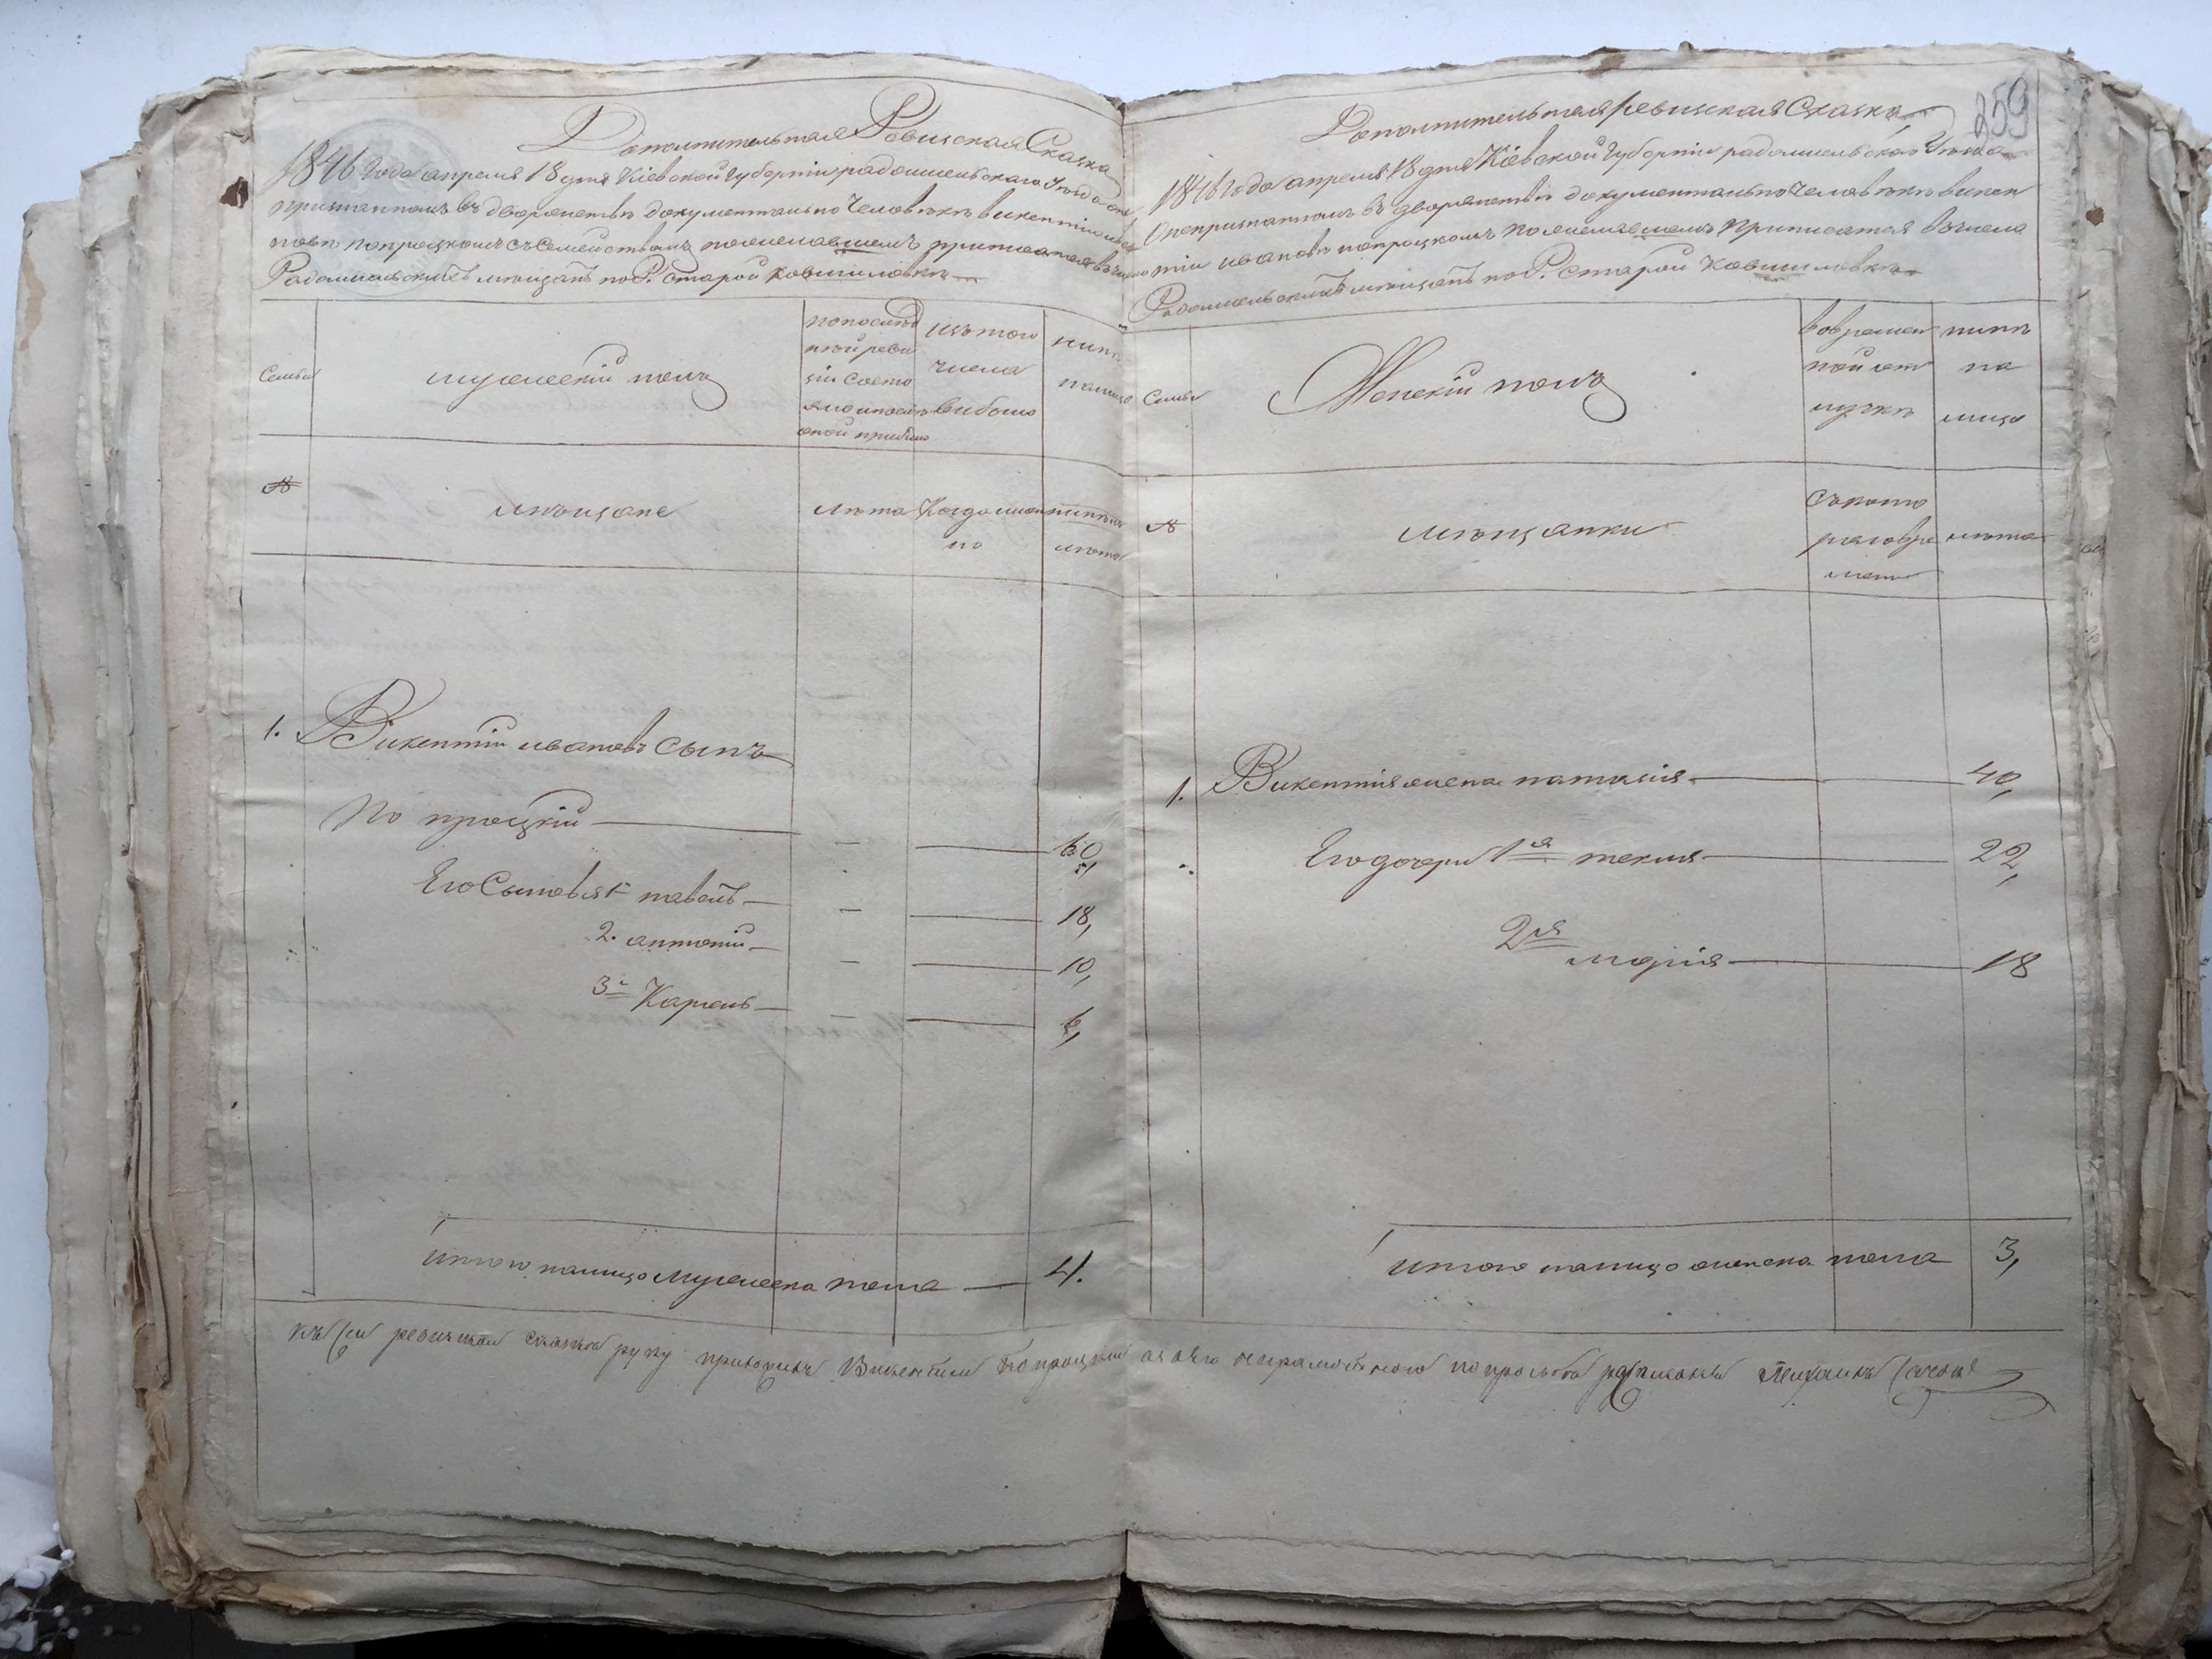 Дополнительная Ревизская Сказка
1846 года апреля 18 дня Кіевской губерніи радомысльскаго Уезда о не
признанномъ въ дворянствѣ документально человѣкѣ викентіи ива
новѣ попроцкомъ съ семействомъ пожелавшемъ приписатся въ число
Радомысльскихъ мѣщанъ по Р. старой
Семьи
мужескій полъ
по послѣд
ней реви
зіи состо
яло и послѣ
оной прибыло
изъ того
числа
выбыло
нынѣ
налицо
№
мѣщане
лѣта
Когда имен
но
нынѣ
лѣта
1. Викентій ивановъ сынъ
Попроцкій — — 60,
Его Сыновья 1й павелъ — — 18,
2. антоній — — 10,
3й Карлъ — —
итого налицо мужеска пола — 4.
259
Дополнительная ревизская Сказка
1846 года апреля 18 дня Кіевской губерніи радомысльскаго Уезда
О непризнанномъ въ дворянствѣ документально человѣкѣ викен
тіи ивановѣ попроцкомъ пожелавшемъ приписатся въ число
Радомысльскихъ мѣщанъ по Р. старой
Семьи
Женскій полъ
во времен
ной отл
учкѣ
нынѣ
на
лицо
№
мѣщанки
Съ котораго вре
мени
лѣта
1. Викентія жена наталія — 40,
Его дочери 1я текля — 22,
2я
марія — 18
итого налицо женска пола 3,
къ сей ревизкой сказки руку приложилъ Викентий Попроцкий а за его неграмотного по прозбѣ росписался